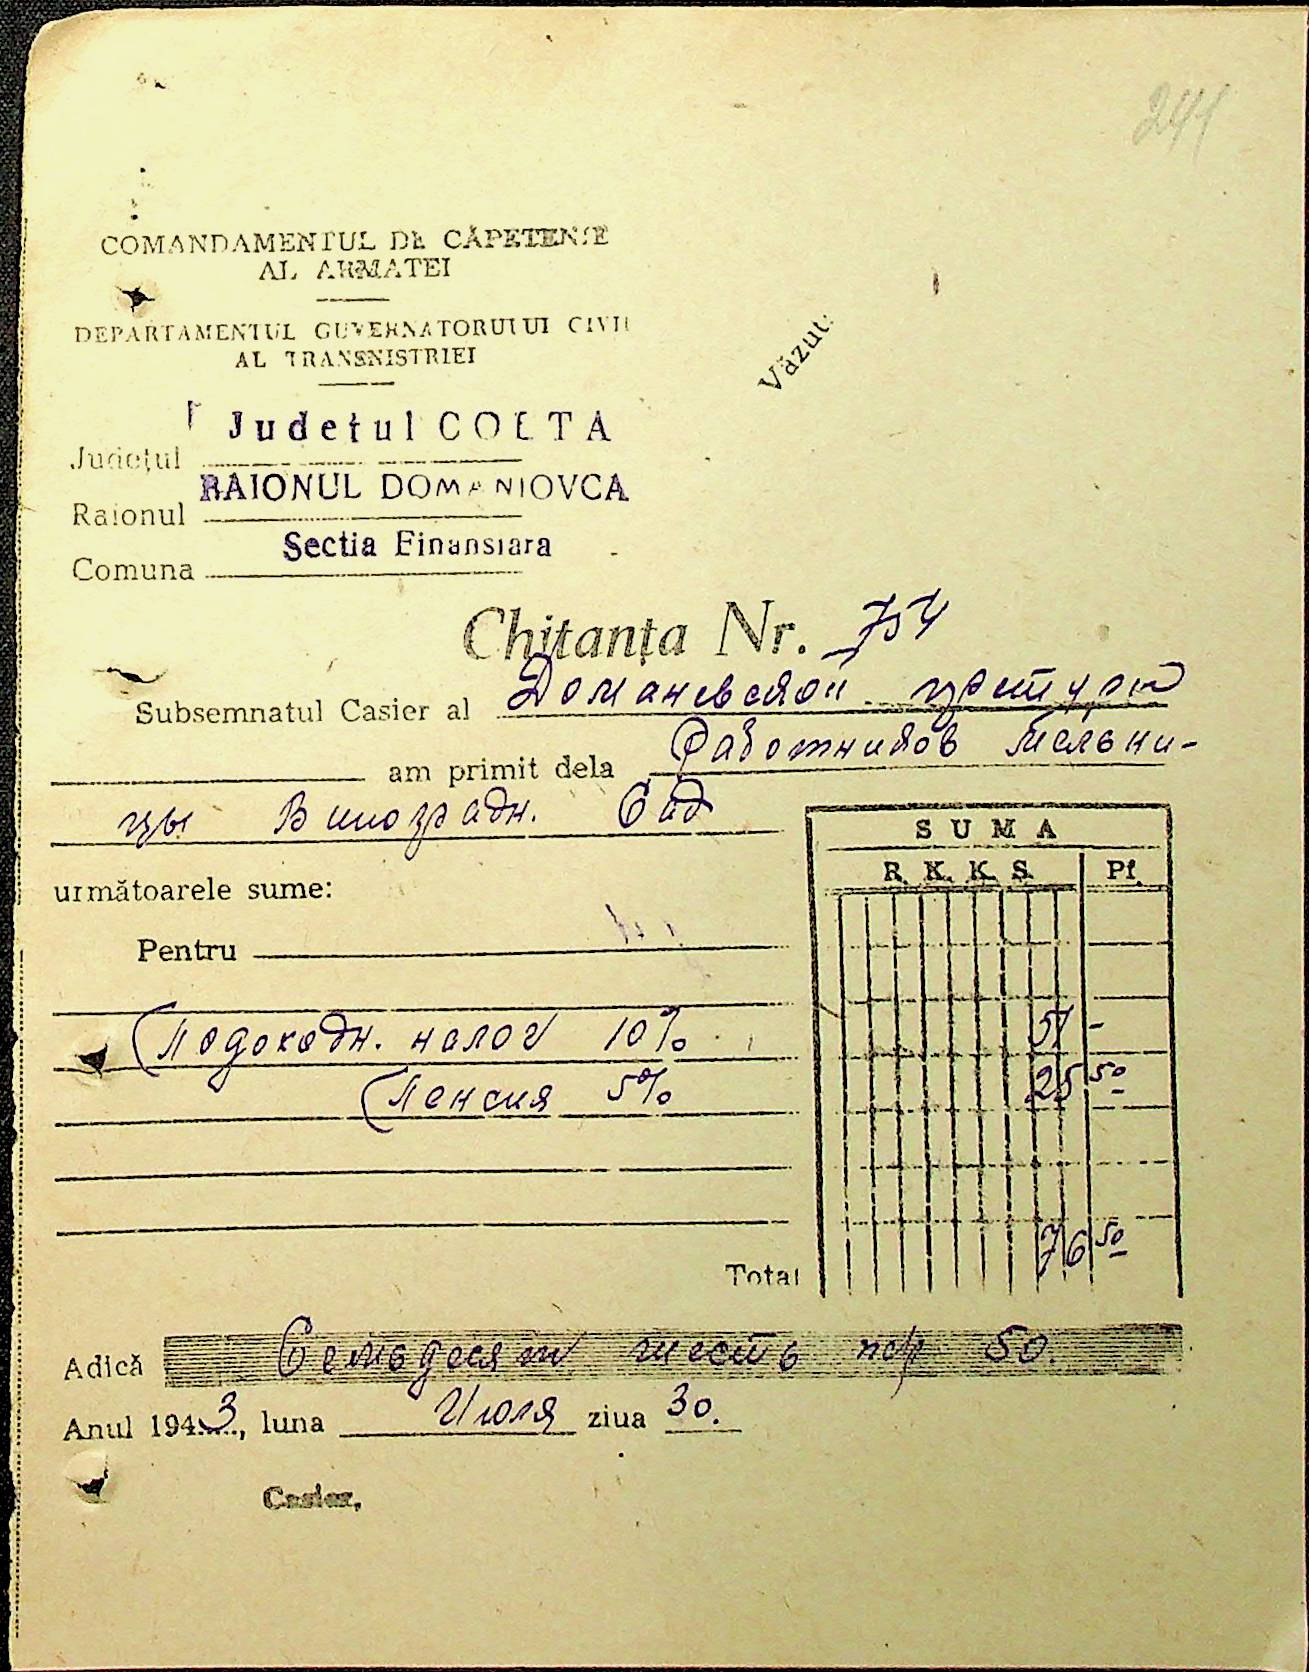 241
COMANDAMENTUL DE CĂPETENIE
AL ARMATEI
DEPARTAMENTUL GUVERNATORULUI CIVIL
AL TRANSNISTRIEI
Văzut:
Judetul COLTA
Județul
RAIONUL DOMANIOVCA
Raionul
Sectia Finansiara
Comuna
Chitanța Nr. 754
Subsemnatul Casier al Доманевской
am primit dela Работников Мельни-
цы Виноградн. Сад
SUMA
R. K. K. S. Pf.
următoarele sume:
Pentru
Подоходн. налог 10% 51 -
Пенсия 5% 25 50
Total 76 50
Adică Семьдесят шесть 50.
Anul 1943, luna Июля ziua 30.
Casier,